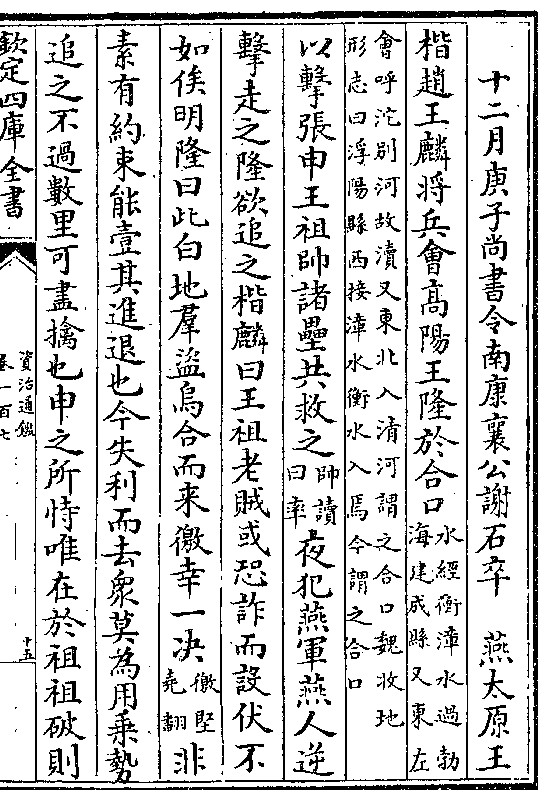 十二月庚子尚書令南康襄公謝石卒　燕太原王
楷趙王麟将兵會髙陽王隆於合口
水經衡漳水過勃
海建成縣又東左
會呼沱别河故瀆又東北入清河謂之合口魏收地
形志曰浮陽縣西接漳水衡水入焉今謂之合口
以擊張申王祖帥諸壘共救之
帥讀
曰率
夜犯燕軍燕人逆
擊走之隆欲追之楷麟曰王祖老賊或恐詐而設伏不
如俟明隆曰此白地羣盜烏合而来徼幸一决
徼堅
堯翻
非
素有約束能壹其進退也今失利而去衆莫為用乗勢
追之不過數里可盡擒也申之所恃唯在於祖祖破則
欽定四庫全書
資治通鑑
卷一百七
十五